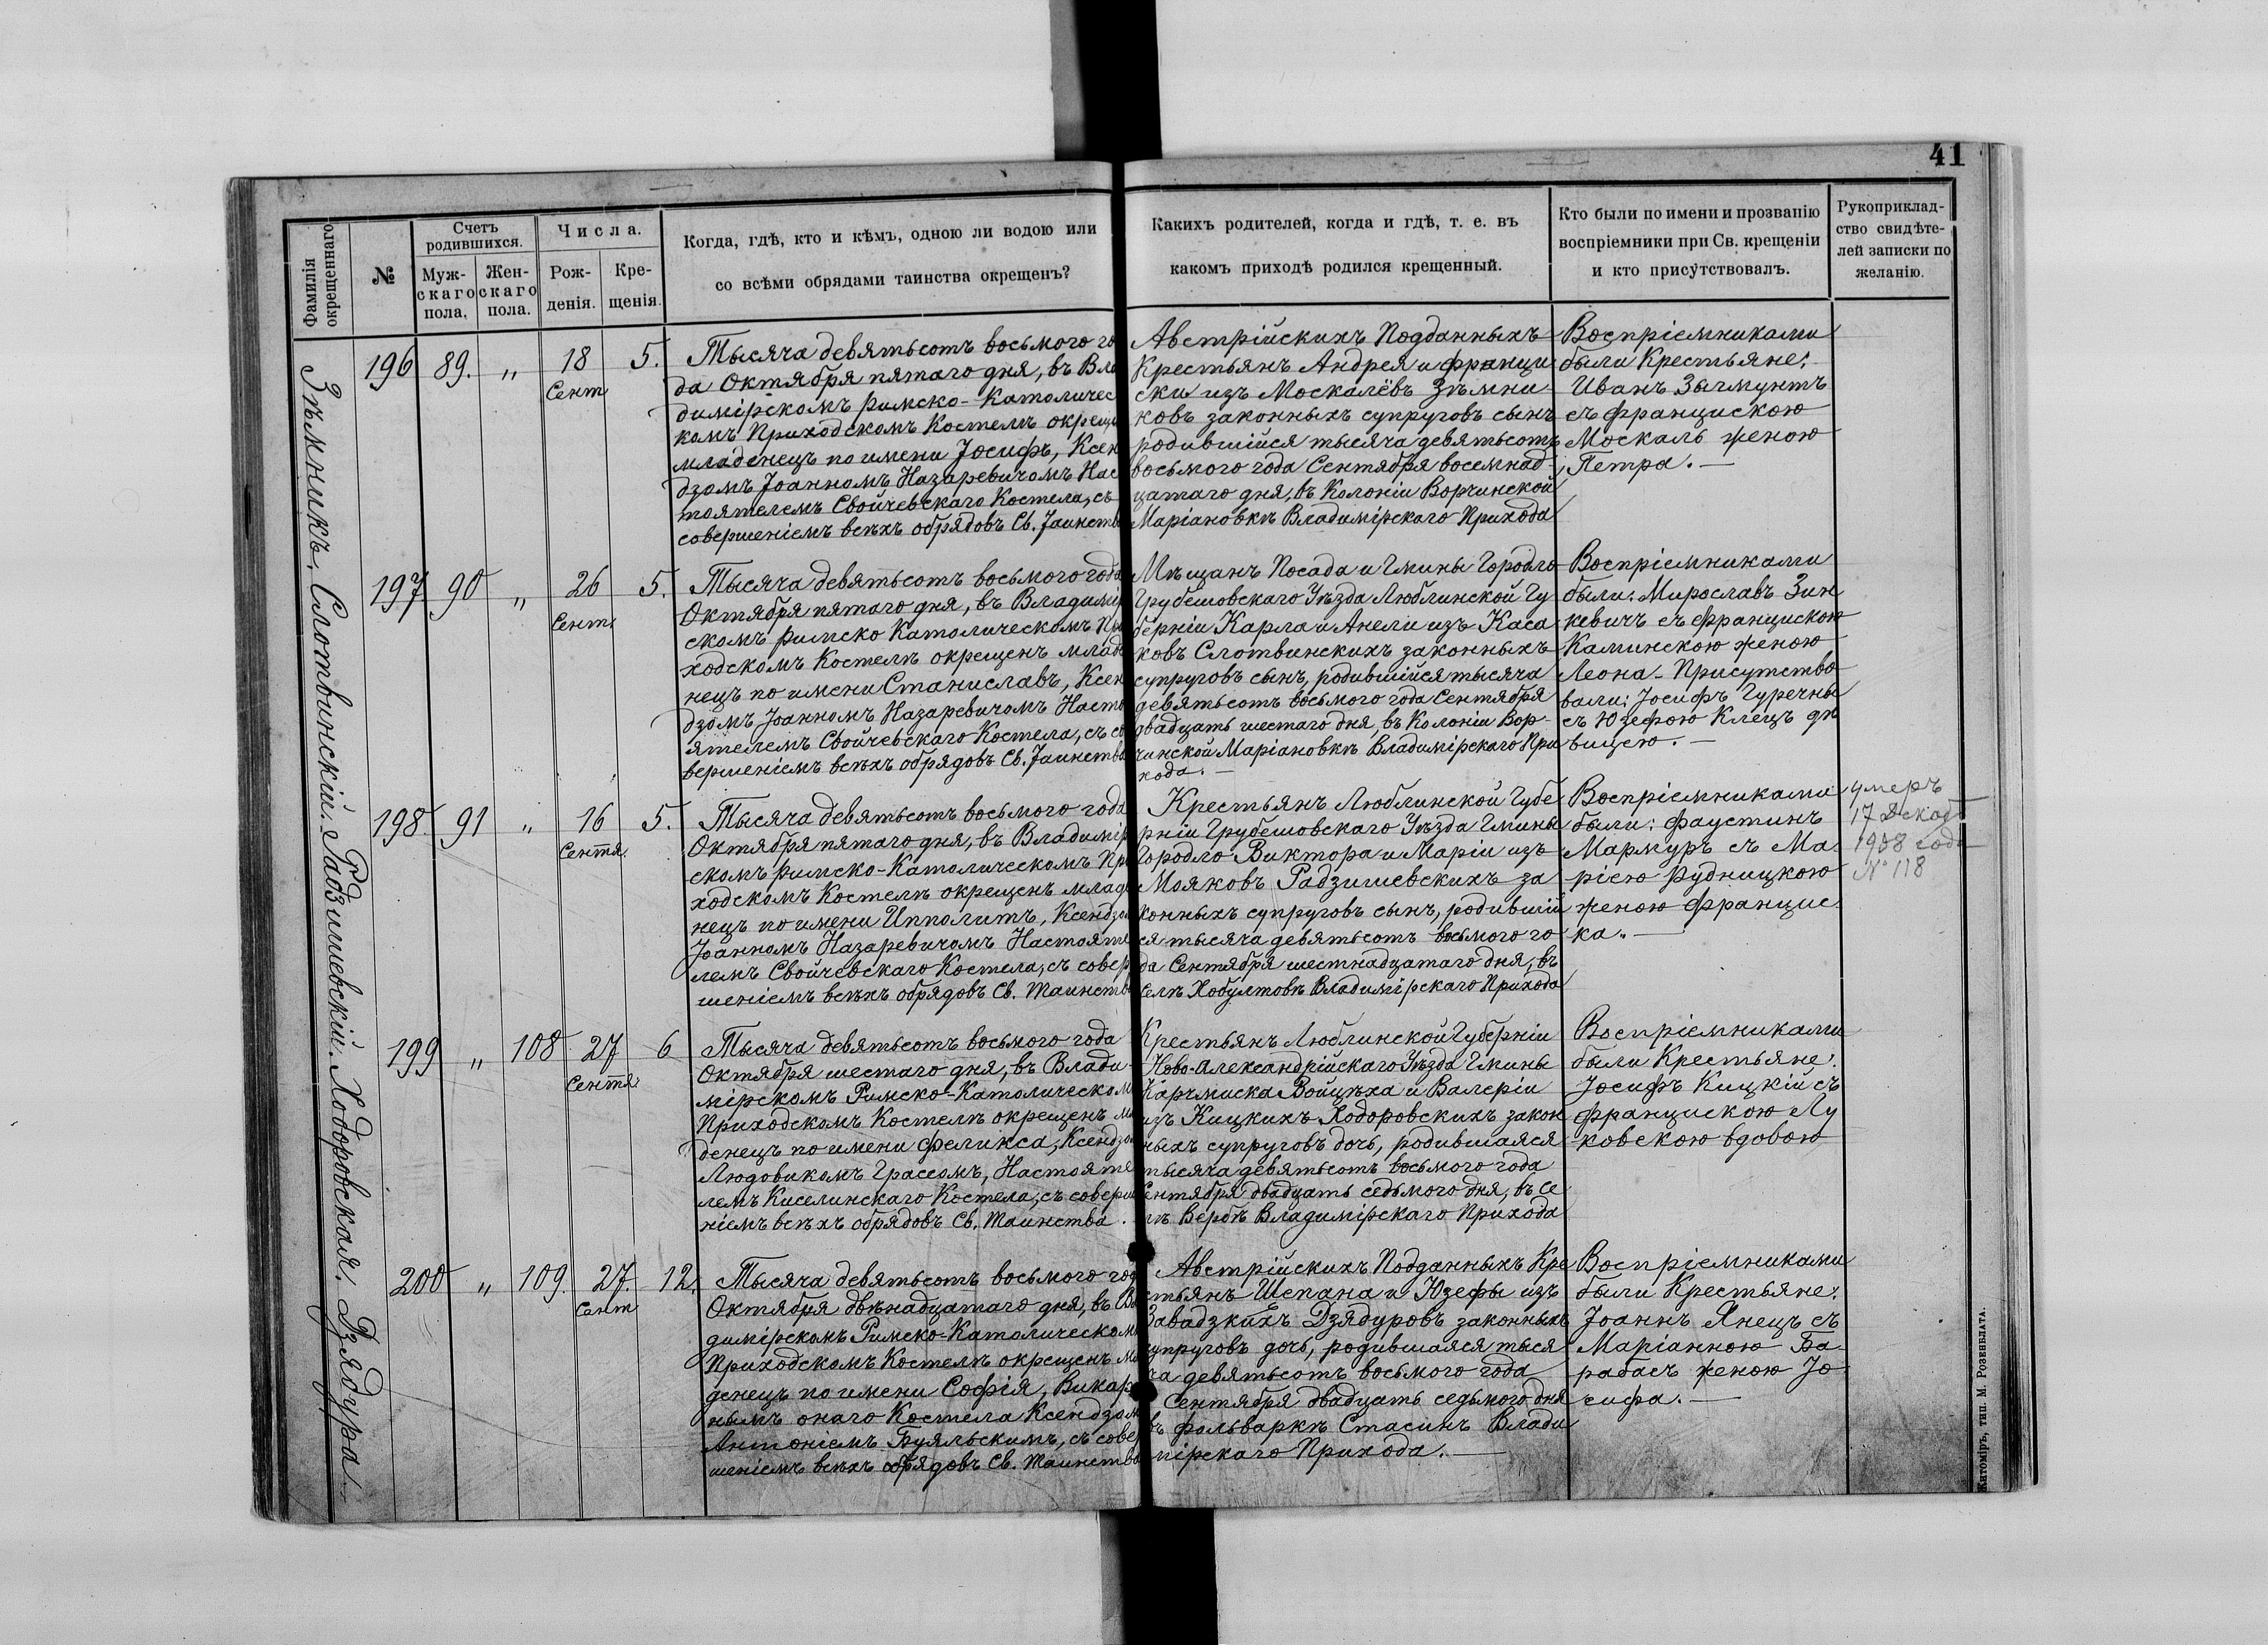 41
Фамилія окрещеннаго
№
Счетъ родившихся.
Мужскаго пола.
Женскаго пола.
Числа.
Рожденія.
Крещенія.
Когда, гдѣ, кто и кѣмъ, одною ли водою или
со всѣми обрядами таинства окрещенъ?
Каких­ъ родителей, когда и гдѣ, т. е. въ
какомъ приходѣ родился крещенный.
Кто были по имени и прозванію
воспріемники при Св. крещеніи
и кто присутствовалъ.
Рукоприклад-
ство свидѣте-
лей записки по
желанію.
Зѣмникъ. Слотвинскій. Радзишевскій. Ходоровская. Дзядура
196 89. „ 18 Сент 5.
Тысяча девятьсотъ восьмого го
да Октября пятаго дня, въ Вла
димірскомъ римско-Католичес
комъ Приходскомъ Костелѣ окреще
младенецъ по имени Іосифъ, Ксен
дзомъ Іоанномъ Назаревичомъ Нас
тоятелемъ Свойчевскаго Костела, съ
совершеніемъ всѣхъ обрядовъ Св. Таинства
Австрійскихъ Подданныхъ
Крестьянъ Андрея и Франци
ски изъ Москалёвъ Зѣмни
ковъ законныхъ супруговъ сынъ
родившійся тысяча девятьсотъ
восьмого года Сентября восемнад-
цатаго дня, въ Колоніи Ворчинской
Маріановкѣ Владимірскаго Прихода
Воспріемниками
были Крестьяне:
Иванъ Зычмунтъ
съ Францискою
Москаль женою
Петра. —
197. 90 „ 26 Сент. 5.
Тысяча девятьсотъ восьмого года
Октября пятаго дня, въ Владимір
скомъ римско Католическомъ При
ходскомъ Костелѣ окрещенъ младе
нецъ по имени Станиславъ, Ксен
дзомъ Іоанномъ Назаревичомъ Насто
ятелемъ Свойчевскаго Костела, съ со
вершеніемъ всѣхъ обрядовъ Св. Таинства
Мѣщанъ Посада и Гмины Городло
Грубешовскаго Уѣзда Люблинской Гу
берніи Карла и Анели изъ Каса
ковъ Слотвинскихъ законныхъ
супруговъ сынъ, родившійся тысяча
девятьсотъ восьмого года Сентября
двадцать шестаго дня, въ Колоніи Вор-
чинской Маріановкѣ Владимірскаго При
хода. —
Воспріемниками
были: Мирославъ Зин
кевичъ съ Францискою
Каминскою женою
Леона. Присутство
вали: Іосифъ Гуречны
съ Юзефою Клецъ дѣ
вицею. —
198. 91 „ 16 Сентя. 5.
Тысяча девятьсотъ восьмого года
Октября пятаго дня, въ Владимір
скомъ римско-Католическомъ При
ходскомъ Костелѣ окрещенъ младе
нецъ по имени Ипполитъ, Ксендзо
Іоанномъ Назаревичомъ Настояте
лемъ Свойчевскаго Костела, съ совер
шеніемъ всѣхъ обрядовъ Св. Таинства
Крестьянъ Люблинской Губе
рніи Грубешовскаго Уѣзда Гмины
Городло Виктора и Маріи изъ
Мояковъ Радзишевскихъ за
конныхъ супруговъ сынъ, родившій
ся тысяча девятьсотъ восьмого го
да Сентября шестнадцатаго дня, въ
Селѣ Хобултовѣ Владимірскаго Прихода
Воспріемниками
были: Фаустинъ
Мармуръ съ Ма-
ріею Рудницкою
женою Францис.
ка. —
умеръ
17 Декаб
1908 года
№ 118
199 „ 108 27 Сентя 6
Тысяча девятьсотъ восьмого года
Октября шестаго дня, въ Влади-
мірскомъ Римско-Католическом
Приходскомъ Костелѣ окрещенъ мл
денецъ по имени Феликса, Ксендзо
Людовикомъ Грассомъ, Настояте
лемъ Киселинскаго Костела, съ соверше
ніемъ всѣхъ обрядовъ Св. Таинства.
Крестьянъ Люблинской Губерніи
Ново-Александрійскаго Уѣзда Гмины
Карчмиска Войцѣха и Валеріи
изъ Кицкихъ Ходоровскихъ закон
ныхъ супруговъ дочь, родившаяся
тысяча девятьсотъ восьмого года
Сентября двадцать седьмого дня, въ Се
лѣ Вербѣ Владимірскаго Прихода
Воспріемниками
были Крестьяне:
Іосифъ Кицкій съ
Францискою Лу
ковскою вдовою
200 „ 109. 27. Сент 12.
Тысяча девятьсотъ восьмого год
Октября двѣнадцатаго дня, въ Вла
димірскомъ Римско-Католическом
Приходскомъ Костелѣ окрещенъ мла
денецъ по имени Софія, Викар
нымъ онаго Костела Ксендзом
Антоніемъ Буяльскимъ, съ совер
шеніемъ всѣхъ обрядовъ Св. Таинства
Австрійскихъ Подданныхъ Кре
стьянъ Щепана и Юзефы изъ
Завадзкихъ Дзядуровъ законныхъ
супруговъ дочь, родившаяся тыся
ча девятьсотъ восьмого года
Сентября двадцать седьмого дня
въ фольваркѣ Стасинъ Влади
мірскаго Прихода. —
Воспріемниками
были Крестьяне:
Іоаннъ Янецъ съ
Маріанною Ба-
рабасъ женою Іо
сифа. —
Житоміръ, тип. М. Розенблата.